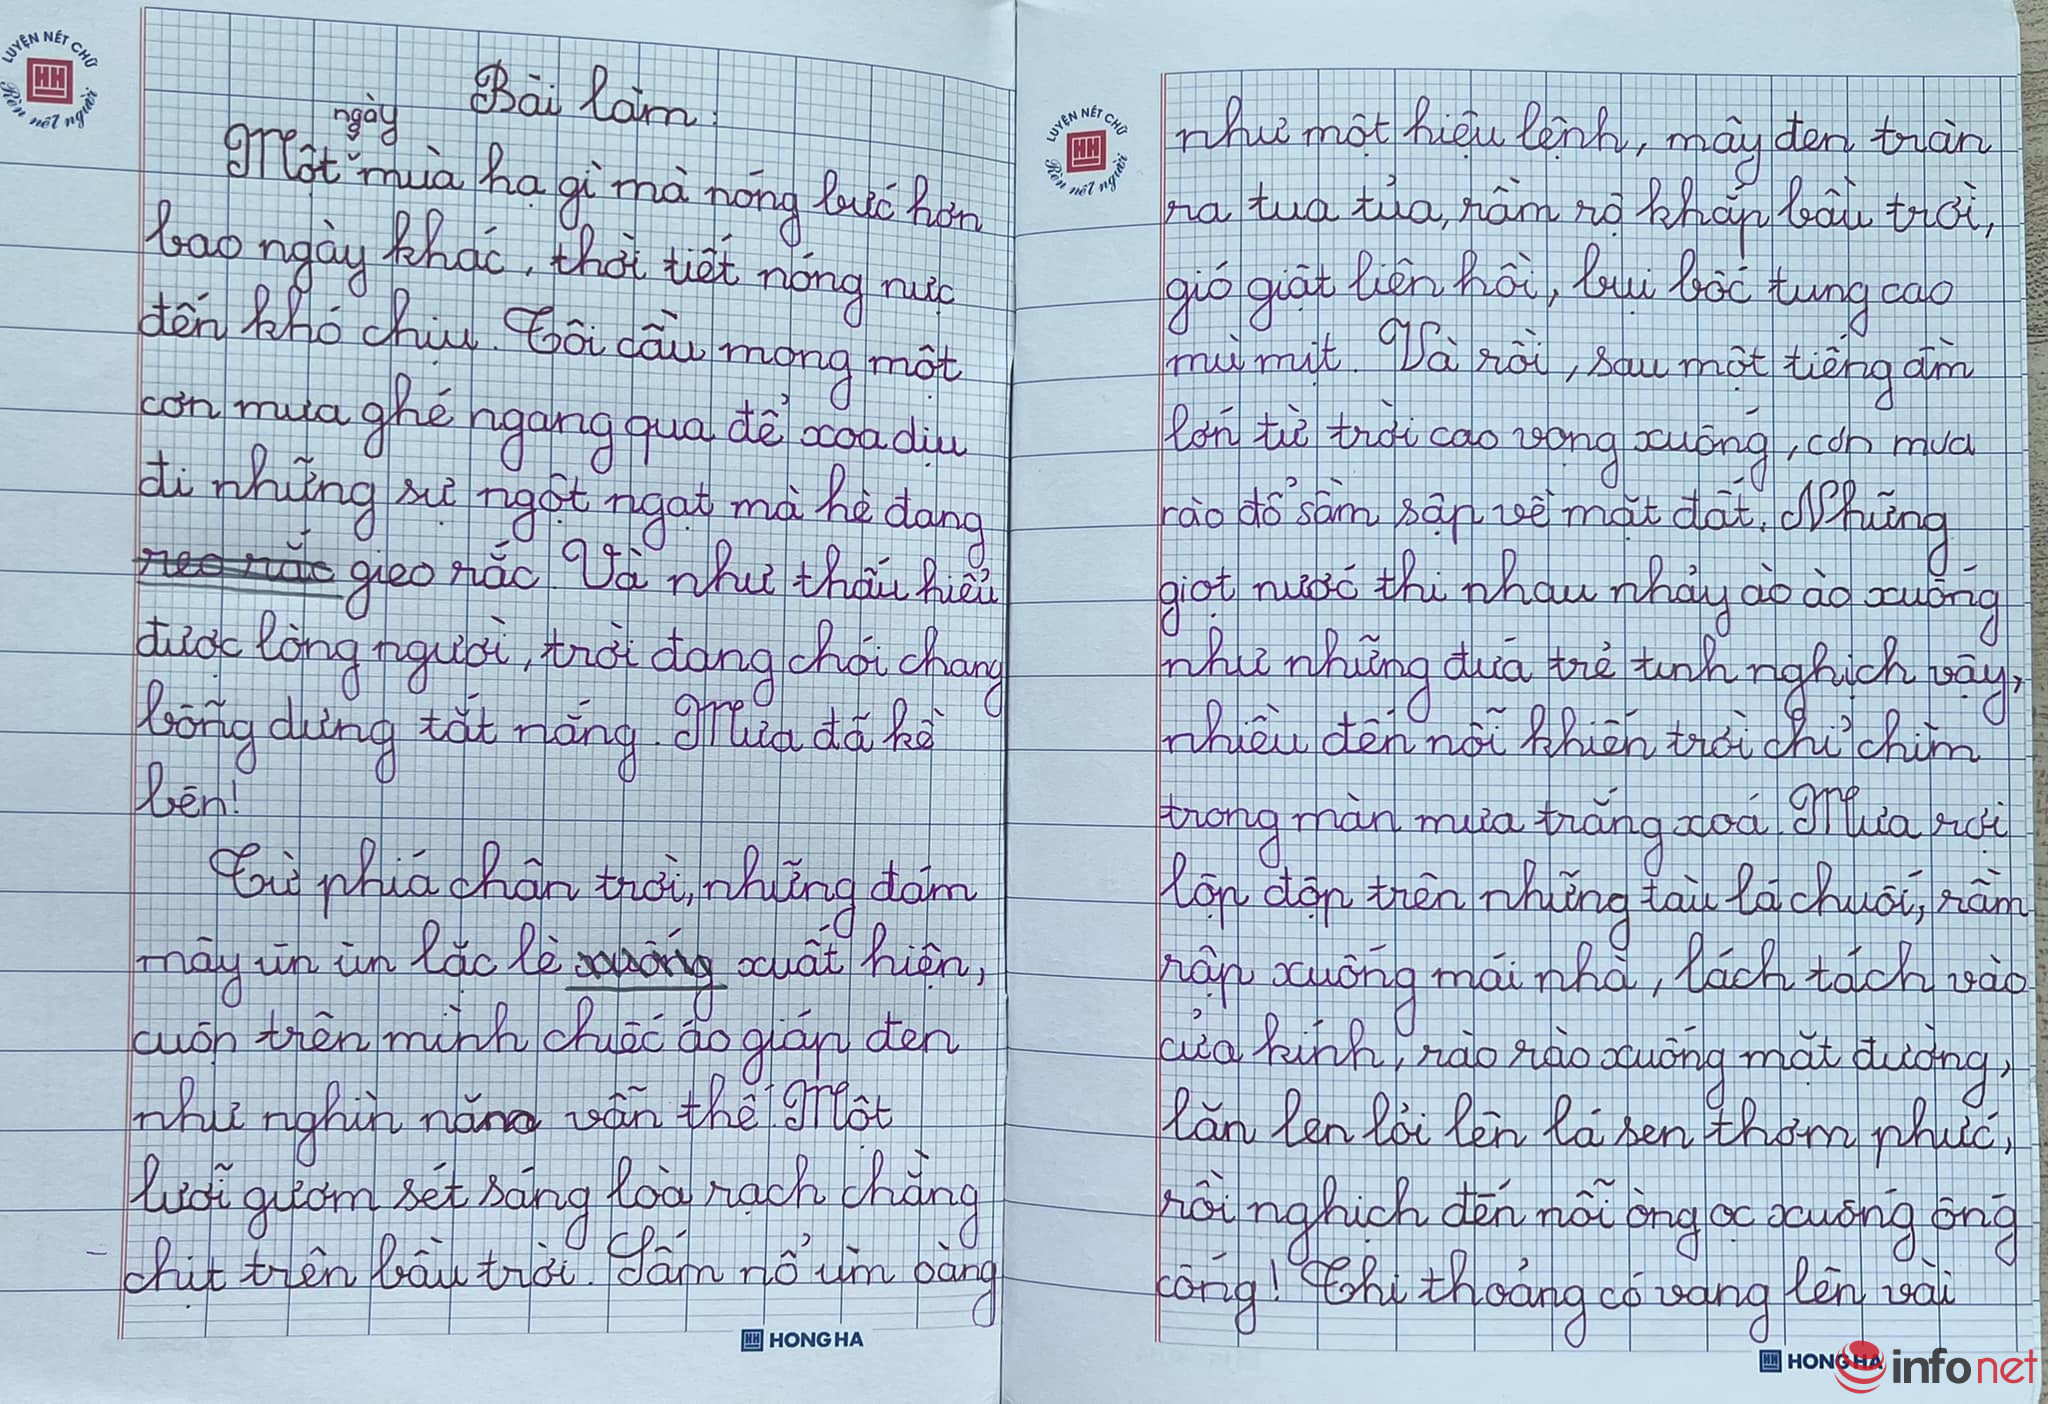 LUYỆN NÉT CHỮ
HH
Rèn nết người
Bài làm:
ngày
Một mùa hạ gì mà nóng bức hơn
bao ngày khác, thời tiết nóng nực
đến khó chịu. Tôi cầu mong một
cơn mưa ghé ngang qua để xoa dịu
đi những sự ngột ngạt mà hè đang
reo rắc gieo rắc. Và như thấu hiểu
được lòng người, trời đang chói chang
bỗng dưng tắt nắng. Mưa đã kề
bên!
Từ phía chân trời, những đám
mây ùn ùn lặc lè xuống xuất hiện,
cuộn trên mình chiếc áo giáp đen
như nghìn năm vẫn thế. Một
lưỡi gươm sét sáng loà rạch chằng
chịt trên bầu trời. Sấm nổ ùm oàng
HH HONG HA
LUYỆN NÉT CHỮ
HH
Rèn nết người
như một hiệu lệnh, mây đen tràn
ra tua tủa, rầm rộ khắp bầu trời,
gió giật liên hồi, bụi bốc tung cao
mù mịt. Và rồi, sau một tiếng đùm
lớn từ trời cao vọng xuống, cơn mưa
rào đổ sầm sập về mặt đất. Những
giọt nước thi nhau nhảy ào ào xuống
như những đứa trẻ tinh nghịch vậy,
nhiều đến nỗi khiến trời chỉ chìm
trong màn mưa trắng xoá. Mưa rơi
lộp độp trên những tàu lá chuối, rầm
rập xuống mái nhà, lách tách vào
cửa kính, rào rào xuống mặt đường,
lăn len lỏi lên lá sen thơm phức,
rồi nghịch đến nỗi òng ọc xuống ống
cống! Thi thoảng có vang lên vài
HH HONG HA
infonet